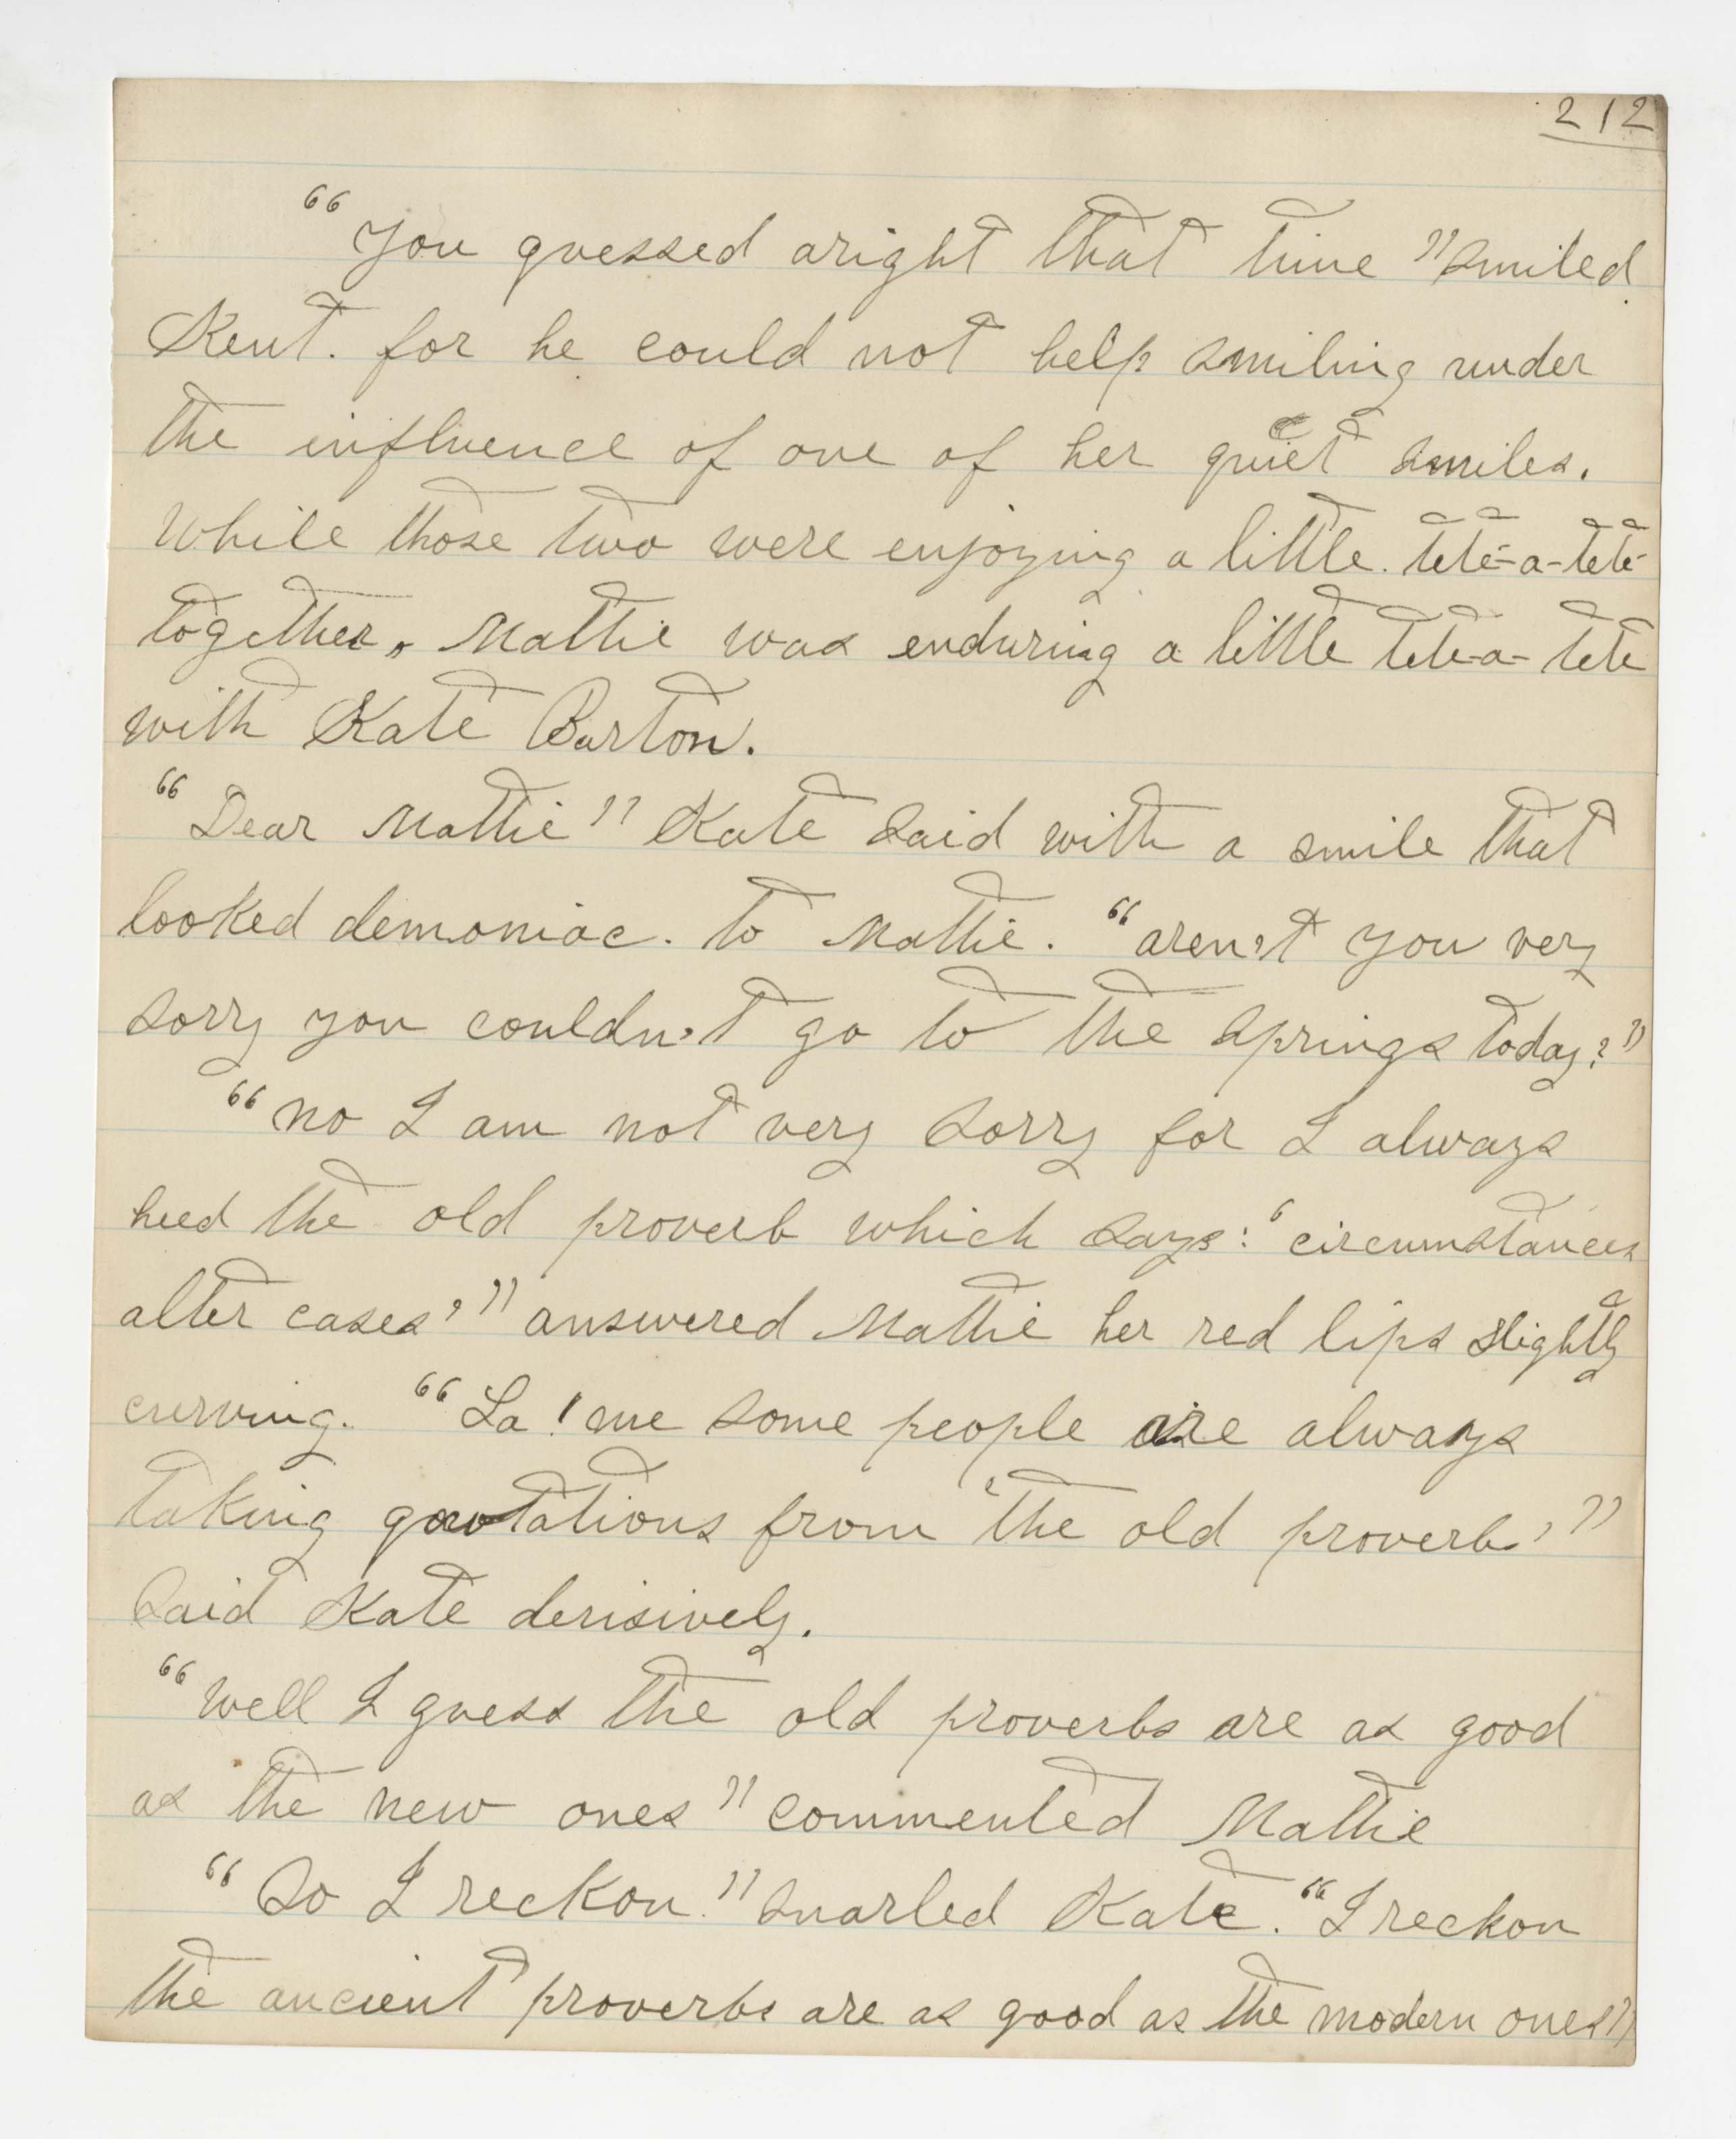 212
"You guessed aright that time" smiled
Kent. for he could not help smiling under
the influence of one of her quiet smiles.
While those two were enjoying a little. tete-a-tete
together, Mattie was enduring a little tete-a-tete
with Kate Burton.
"Dear Mattie" Kate said with a smile that
looked demoniac. to Mattie. "aren't you very
sorry you couldn't go to the springs today?"
"no I am not very sorry for I always
heed the old proverb which says: 'circumstances
alter cases'" answered Mattie her red lips slightly
curving. "La! me some people are always
taking quotations from 'the old proverb'"
said Kate derisively.
"well I guess the old proverbs are as good
as the new ones" commented Mattie
"So I reckon." snarled Kate. "I reckon
the ancient proverbs are as good as the modern ones"